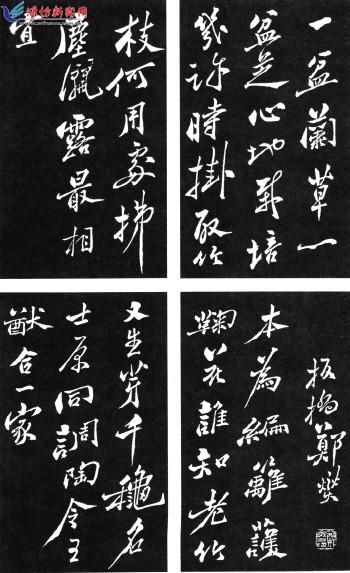 潍坊新闻网
一盆蘭草一
盆芝心地栽培
幾許時掛取竹
枝何用處拂
塵灑露最相
宜
板橋鄭燮
本為編籬護
鞠花誰知老竹
又生芽千穐名
士原同調陶令王
猷合一家